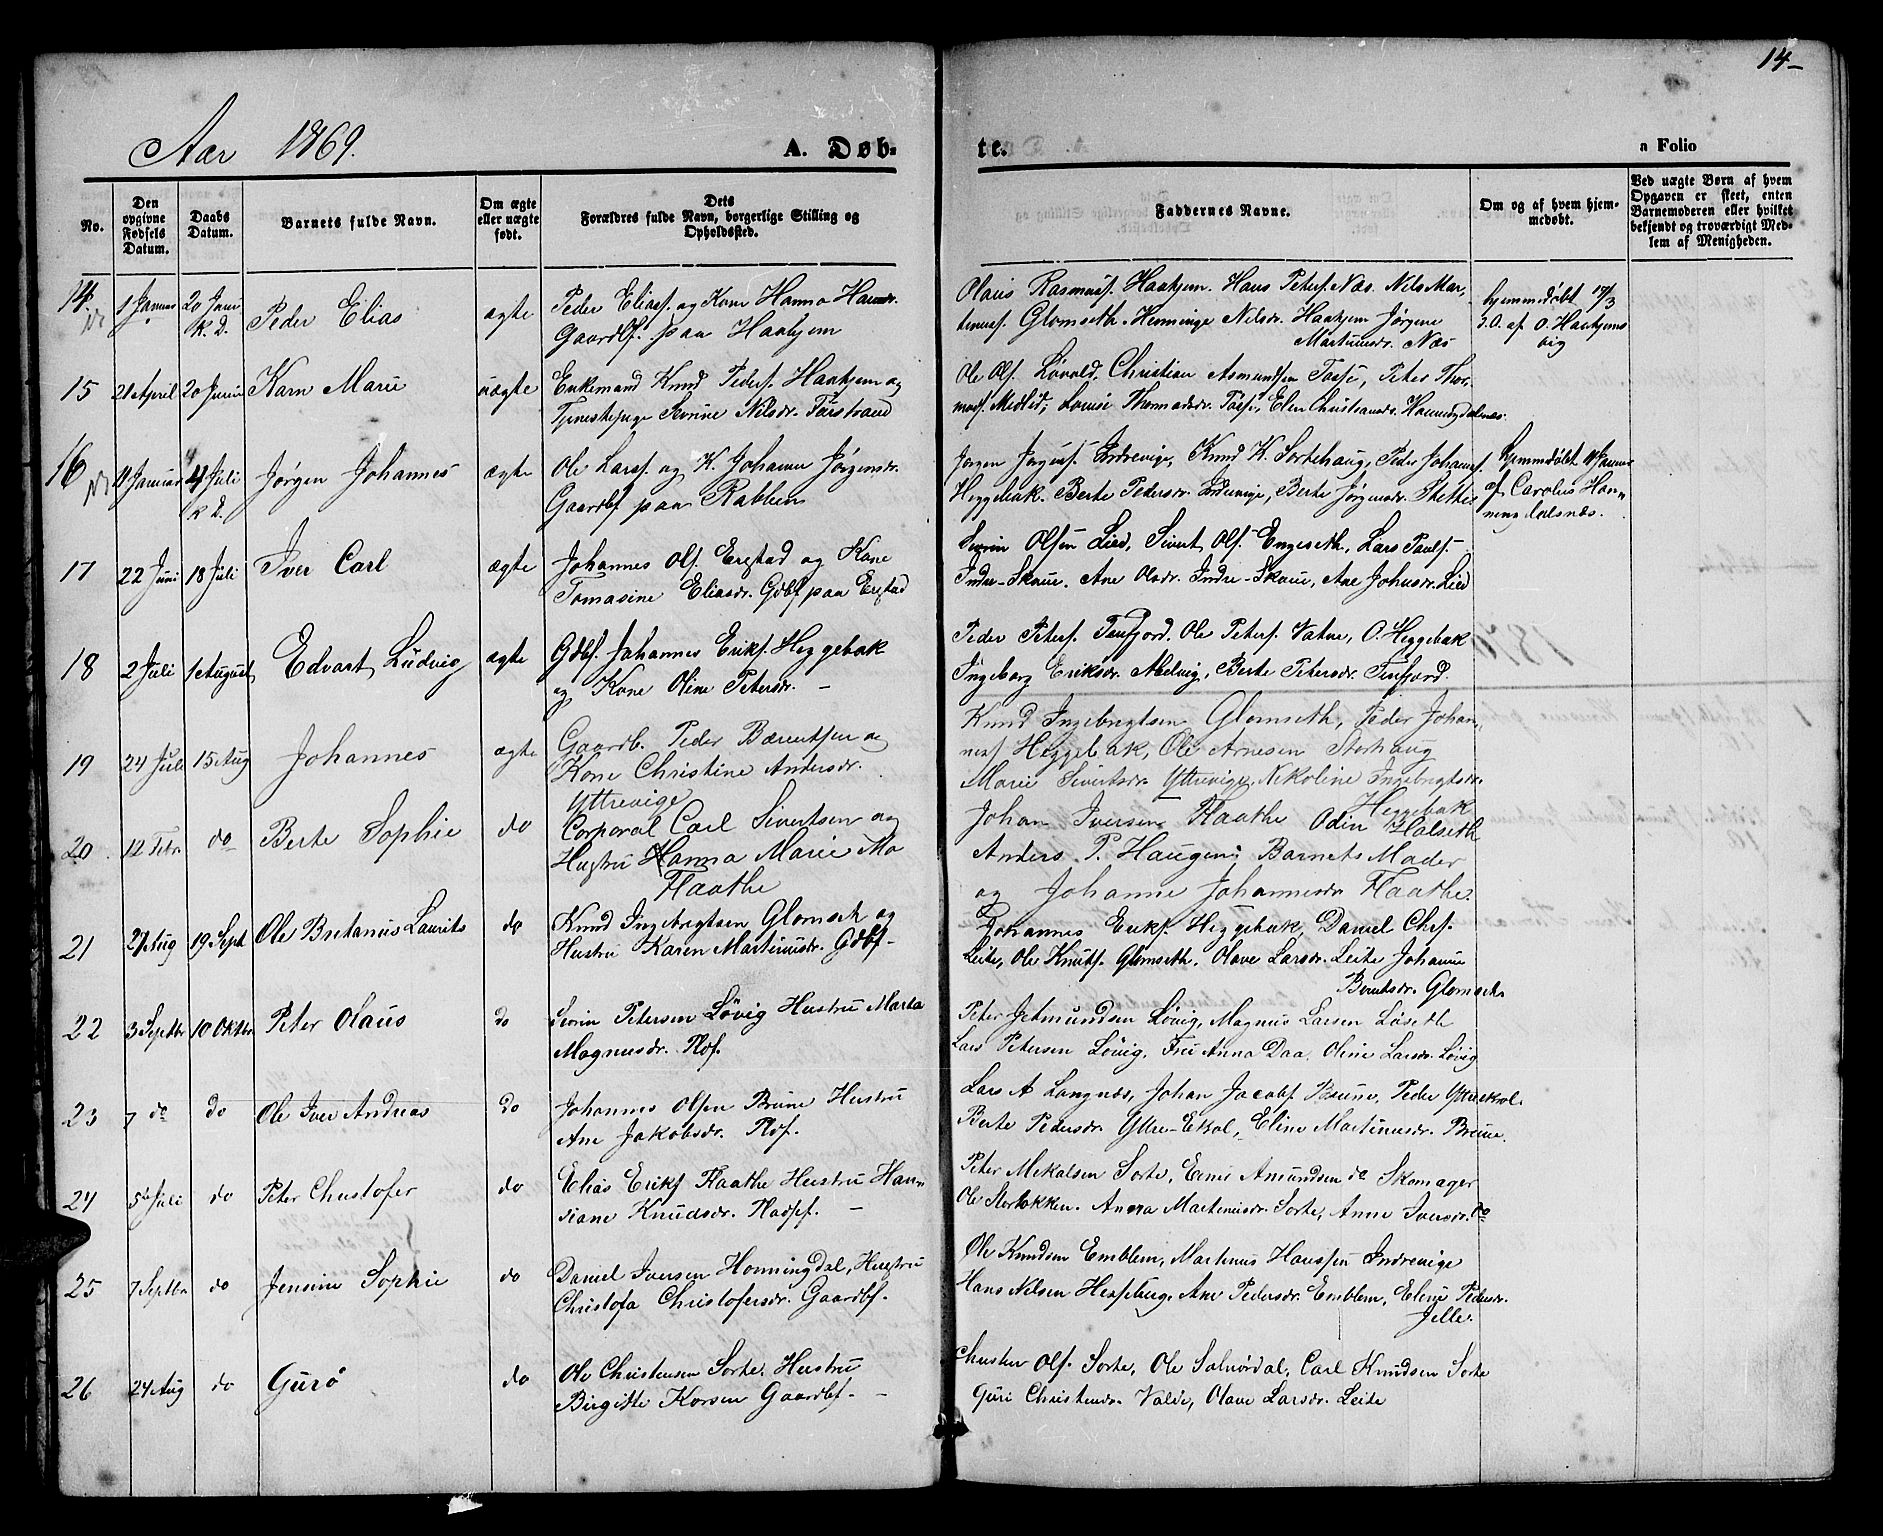 14-
Aar 1869.
A. Døb-
te.
a Folio
No.
Den opgivne Fødsels Datum.
Daabs Datum.
Barnets fulde Navn.
Om ægte eller uægte født.
Dets Forældres fulde Navn, borgerlige Stilling og Opholdssted.
Faddernes Navne.
Om og af hvem hjemmedøbt.
Ved uægte Børn af hvem Opgaven er skeet, enten Barnemoderen eller hvilket bekjendt og troværdigt Medlem af Menigheden.
14. 1 Januar 20 Juni K. D. Peder Elias ægte
Peder Eliasf. og Kone Hanna Hansdr.
Gaardbf. paa Haahjem
Olaus Rasmusf. Haahjem. Hans Petersf. Næs. Nils Mar,
tinusf. Glomseth. Henninge Nilsdr. Haahjem Jørgine
Martinusdr. Næs
hjemmedøbt
af O. Haahjems
vig
15 21 April 20 Juni Karn Marie uægte
Enkemand Knud Pedersf. Haahjem og
Tjenestepige Severine Nilsdr. Farstrand
Ole Olsf. Løvold, Christian Asmundsen Tøsse, Peter Thor
Medlid; Lovise Thomasdr. Tøsse, Elen Christiansdr. Honningdalsnæs.
16 11 Januar 4 Juli K D. Jørgen Johannes ægte
Ole Larsf. og K. Johanne Jørgensdr.
Gaardbf. paa Rabben
Jørgen Jørgensf. Indrevige, Knud K. Sortehaug, Peder Johansf.
Heggebak. Berte Pedersdr. Indrevige, Berte Jørgensdr. Slettes
hjemmedøbt 11 Januar
af Carolus Hon
ningdalsnæs.
17 22 Juni 18 Juli Iver Carl ægte
Johannes Olsf. Erestad og Kone
Tomasine Eliasdr. Gdbf paa Erestad
Severin Olsen Lied, Sivert Olsf. Engeseth, Lars Paulsf.
Indre-Skaue. Ane Olsdr. Indre-Skaue, Ane Johnsdr. Lied
18 2 Juli 1 August Edvart Ludvig ægte
Gdbf. Johannes Eriksf. Heggebak
og Kone Oline Petersdr. -
Peder Petersf. Tenfjord. Ole Petersf. Vatne, O. Heggebak
Ingeborg Eriksdr. Melvig, Berte Petersdr. Tenfjord.
19 24 Juli 15 Aug Johannes ægte
Gaardb. Peder Bærentsen og
Kone Christine Andersdr.
Yttrevige
Knud Ingebrigtsen Glomseth, Peder Johan,
nesf Heggebak, Ole Arnesen Storhaug
Marie Sivertsdr. Yttrevige, Nikoline Ingebrigtsdr.
Heggebak
20. 12 Febr do Berte Sophie do
Corporal Carl Sivertsen og
Hustru Hanna Marie Mo
Flaathe
Johan Iversen Flaathe Odin Halseth
Anders P. Haugen, Barnets Moder
og Johanne Johannesdr. Flaathe.
21 27 Aug 19 Sept Ole Bretanus Laurits do
Knud Ingebrigtsen Glomseth og
Hustru Karen Martinusdr. Gdbf-
Johannes Eriksf. Heggebak, Daniel Chrf.
Leite, Ole Knutsf. Glomseth. Olave Larsdr. Leite Johanne
Berntsdr. Glomseth
22 3 Septbr 10 Oktbr Peter Olaus do
Severin Petersen Løvig Hustru Marta
Magnusdr. Pldf.
Peter Jetmundsen Løvig, Magnus Larsen Løseth
Lars Petersen Løvig, Fru Anna Daa. Oline Larsdr. Løvig
23 7 do do Ole Iver Andreas do
Johannes Olsen Brune Hustru
Ane Jakobsdr. Pldf.
Lars A Langnæs, Johan Jacobsf Brune, Peder Yttreekol.
Berte Pedersdr. Yttre-Ekol, Eline Martinusdr. Brune.
24 5 Juli do Peter Christofer do
Elias Eriksf Flaathe Hustru Han
siane Knudsdr. -
Peter Mikalsen Sorte, Amundsen do Skomager
Ole Storbakken. Martinusdr. Sorte, Anne Iversdr. do
25 7 Septbr do Jensine Sophie do
Daniel Iversen Honningdal, Hustru
Christofa Christofersdr. Gaardbf.
Ole Knudsen Emblem, Martinus Hanssen Indrevige
Hans Nilsen Hesseberg. Ane Pedersdr. Emblem, Eline Pedersdr.
Jelle.
26 24 Aug do Gurø do
Ole Christensen Sorte. Hustru
Birgitte Korsen Gaardbf. -
Christen Olsf. Sorte, Ole Solnørdal, Carl Knudsen Sorte
Guri Christensdr. Valde, Olave Larsdr. Leite